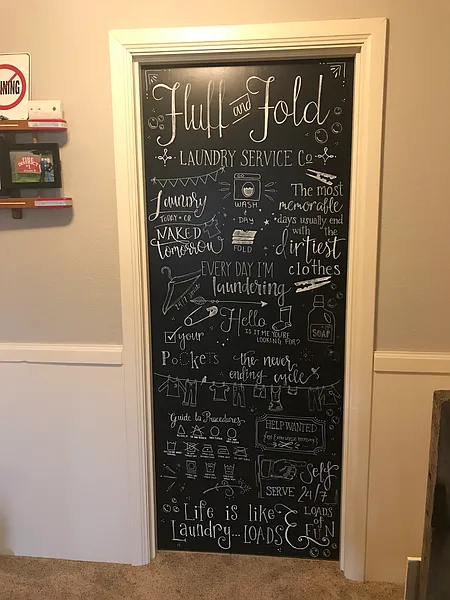 NING
Fluff and Fold
LAUNDRY SERVICE Co
Laundry
TODAY OR
NAKED
tomorrow
WASH
& DAY
FOLD
The most
memorable
days usually end
with the
dirtiest
clothes
EVERY DAY I'M
laundering
Hello
IS IT ME YOU'RE
LOOKING FOR?
SOAP
your
Pockets
the never
ending cycle
Guide to Procedures
HELP WANTED
No Experience necessary
Self
SERVE 24/7
Life is like
Laundry... LOADS
& LOADS
of
FUN